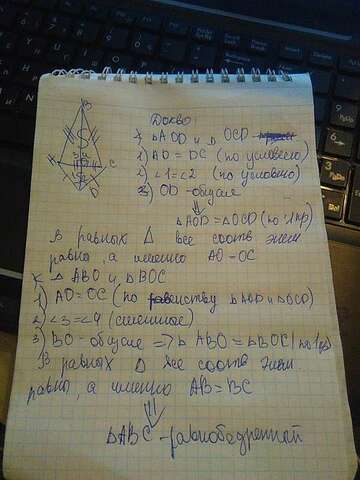 B
K
C
D
Док-во
△AOD и △OCD
1) AD = DC (по условию)
2) ∠1=∠2 (по условию)
3) OD - общие
⇓
△AOD = △OCD (по 1 пр)
В равных △ все соотв элем
равно, а именно AO - OC
△ ABO и △BOC
1) AO = OC (по равенству △AOD и △OCD)
2) ∠3 = ∠4 (смежные)
3) BO - общие => △ ABO = △BOC (по 1 пр)
В равных △ все соотв элем.
равно, а именно AB = BC
⇓
△ABC - равнобедренный